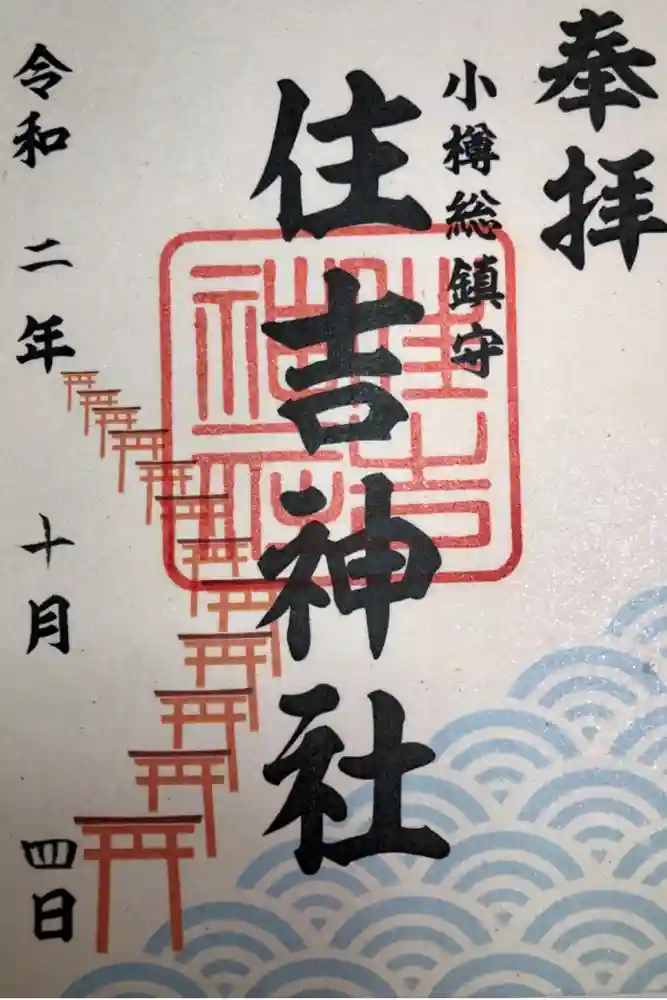 奉拝
小樽総鎮守
住吉神社
住吉
神社
令和二年十月四日